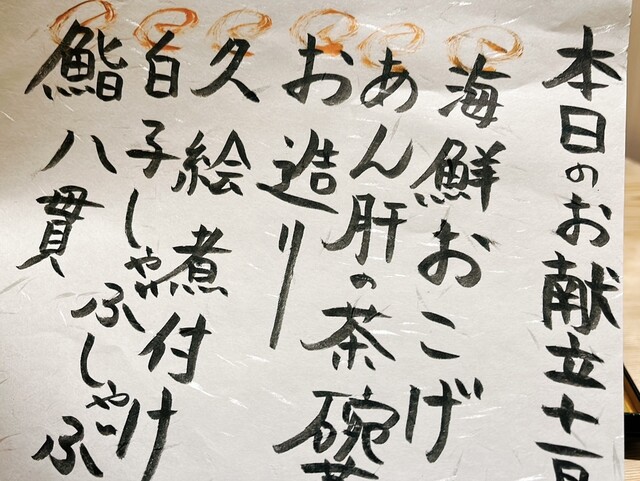 本日のお献立十一月
海鮮おこげ
あん肝の茶碗蒸
お造り
久絵煮付け
白子しゃぶしゃぶ
鮨八貫